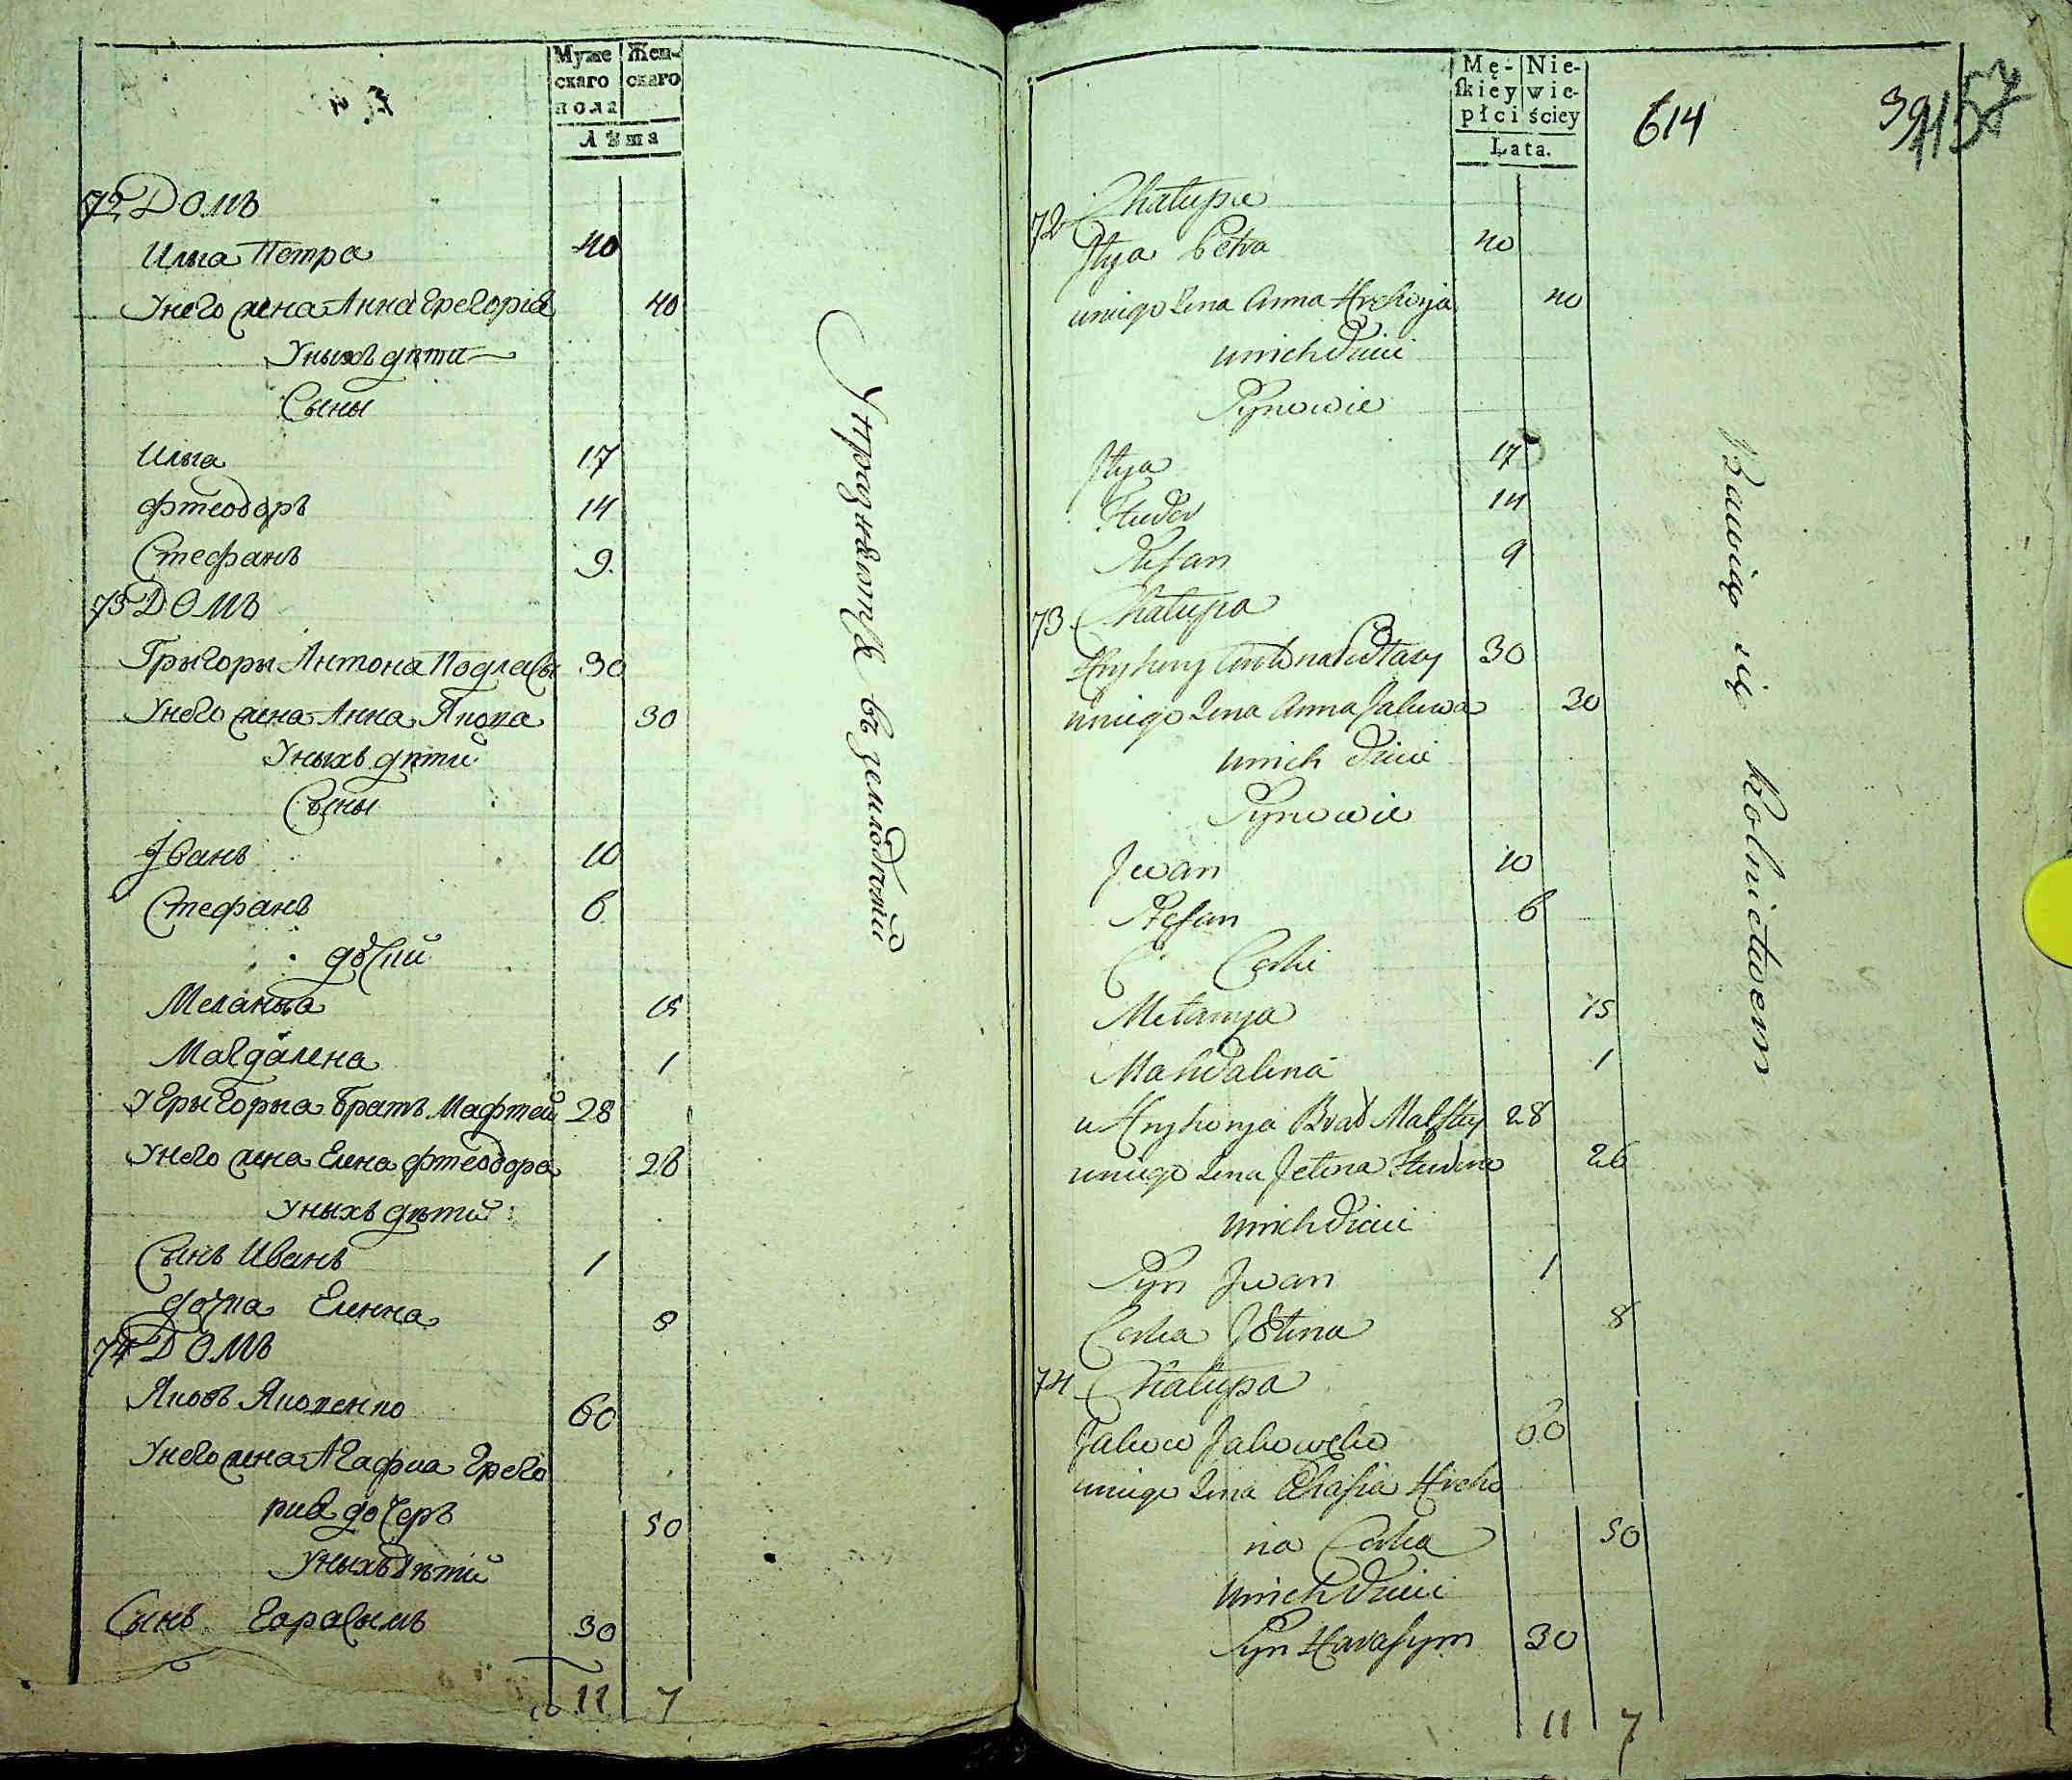 Муже Жен-
скаго скаго
пола
Лѣта
72 Домъ
Илиа Петра 40
Унего жена Анна Грегориа 40
Уныхъ дѣти
Сыны
Илиа 17
Фтеодоръ 14
Стефанъ 9
73 Домъ
Грыгоры Антона Подласы 30
Унего жена Анна Якова 30
Уныхъ дѣти
Сыны
Іванъ 10
Стефанъ 6
дочки
Меланиа 15
Магдалена 1
У Грыгориа братъ Мафтей 28
Унего жена Елена Фтеодора 26
Уныхъ дѣти
Сынъ Иванъ 1
дочка Еленна 8
74 Домъ
Яковъ Яковенко 60
Унего жена Агафиа Грего
риа дочеръ 50
Уныхъ дѣти
Сынъ Гарасымъ 30
11 7
Упражнѣются въ земледѣліи
Mę- Nie-
skiey wie-
płci ściey
Lata.
614
39
157
72 Chałupa
Jlya Petra 40
uniego Żena Anna Hrehorja 40
unich Dzieci
Synowie
Jlya 17
Ftudor 14
Stefan 9
73 Chałupa
Hryhory Antona Podłasy 30
uniego Żena Anna Jakowa 30
unich Dzieci
Synowie
Jwan 10
Stefan 6
Corki
Mełanya 15
Mahdalena 1
u Hryhorya Brat Maftey 28
uniego Żena Jełena Ftudora 26
unich Dzieci
Syn Jwan 1
Corka Jełena 8
74 Chałupa
Jakow Jakowenko 60
uniego Żena Ahafia Hreho
ria Corka 50
unich Dzieci
Syn Harasym 30
11 7
Bawią się Rolnictwem